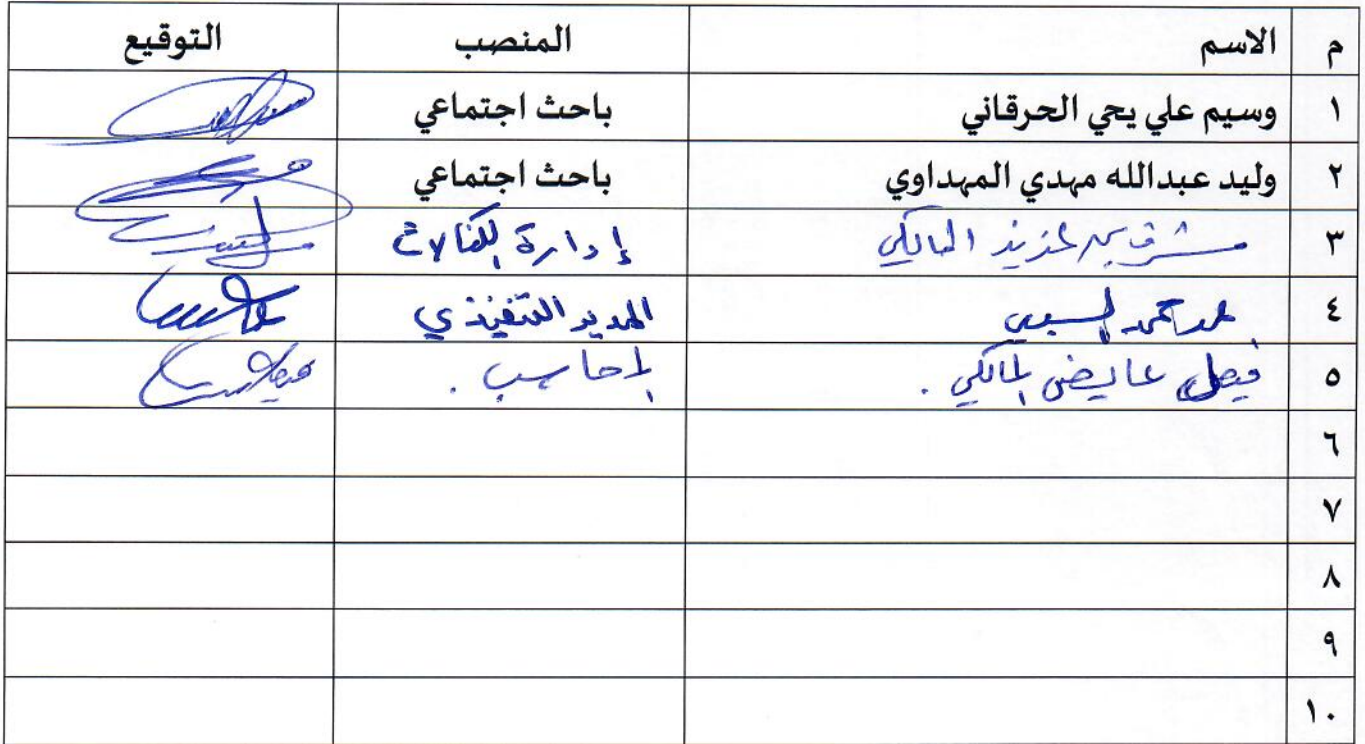 م الاسم المنصب التوقيع
١ وسيم علي يحي الحرقاني باحث اجتماعي
٢ وليد عبدالله مهدي المهداوي باحث اجتماعي
٣ المالكي إدارة الكفالات
٤ المدير التنفيذي
٥ فيصل عايض المالكي . المحاسب .
٦
٧
٨
٩
١٠